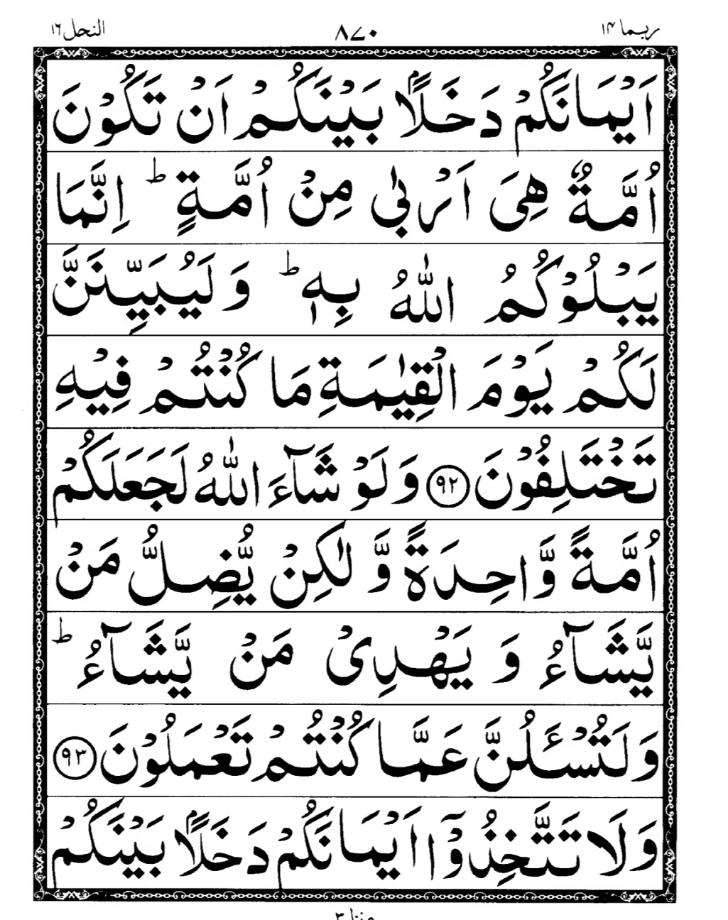 ربما ۱۴ ۸۷۰ النحل ۱۶
اَیْمَانَكُمْ دَخَلًۢا بَیْنَكُمْ اَنْ تَكُوْنَ
اُمَّةٌ هِیَ اَرْبٰی مِنْ اُمَّةٍ ؕ اِنَّمَا
یَبْلُوْكُمُ اللّٰهُ بِهٖ ؕ وَ لَیُبَیِّنَنَّ
لَكُمْ یَوْمَ الْقِیٰمَةِ مَا كُنْتُمْ فِیْهِ
تَخْتَلِفُوْنَ ﴿۹۲﴾ وَ لَوْ شَآءَ اللّٰهُ لَجَعَلَكُمْ
اُمَّةً وَّاحِدَةً وَّ لٰكِنْ یُّضِلُّ مَنْ
یَّشَآءُ وَ یَهْدِیْ مَنْ یَّشَآءُ ؕ
وَ لَتُسْـَٔلُنَّ عَمَّا كُنْتُمْ تَعْمَلُوْنَ ﴿۹۳﴾
وَ لَا تَتَّخِذُوْۤا اَیْمَانَكُمْ دَخَلًۢا بَیْنَكُمْ